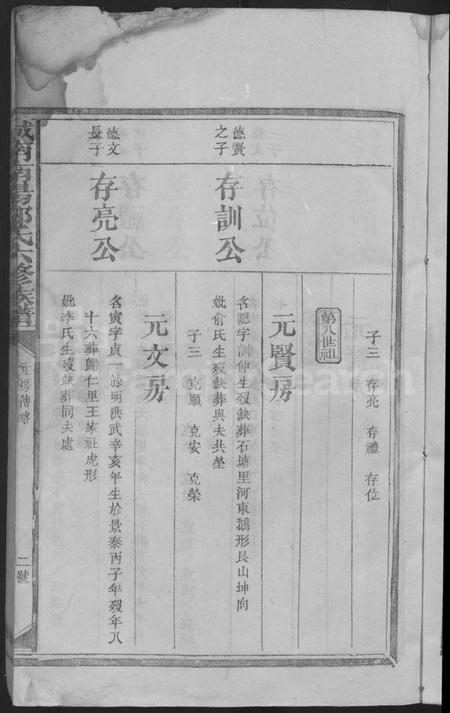 子三 存亮 存禮 存位
第八世祖
元賢房
德賢之子
存訓公
名隱字訓仲生歿缺葬石塘里河東鵝形艮山坤向
妣俞氏生歿缺葬與夫共塋
子三 克順 克安 克榮
元文房
德文長子
存亮公
名寅字貞一於明洪武辛亥年生於景泰丙子年歿年八
十六葬歸仁里王家社虎形
妣李氏生歿缺葬同夫處
氏六修族譜
元房傳略
二號